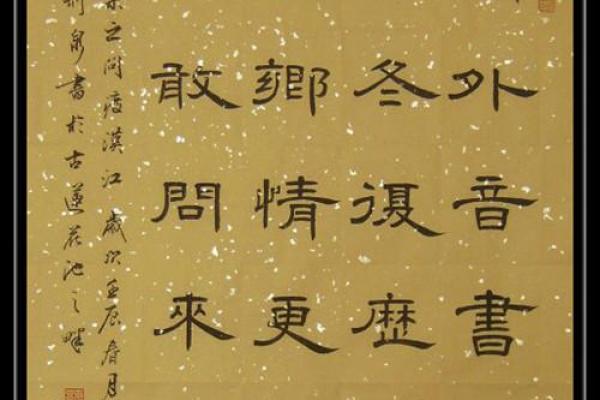 外音書
冬復歷
鄉情更
敢問來
之問渡漢江歲次壬辰春月
泉書於古蓮花池之畔